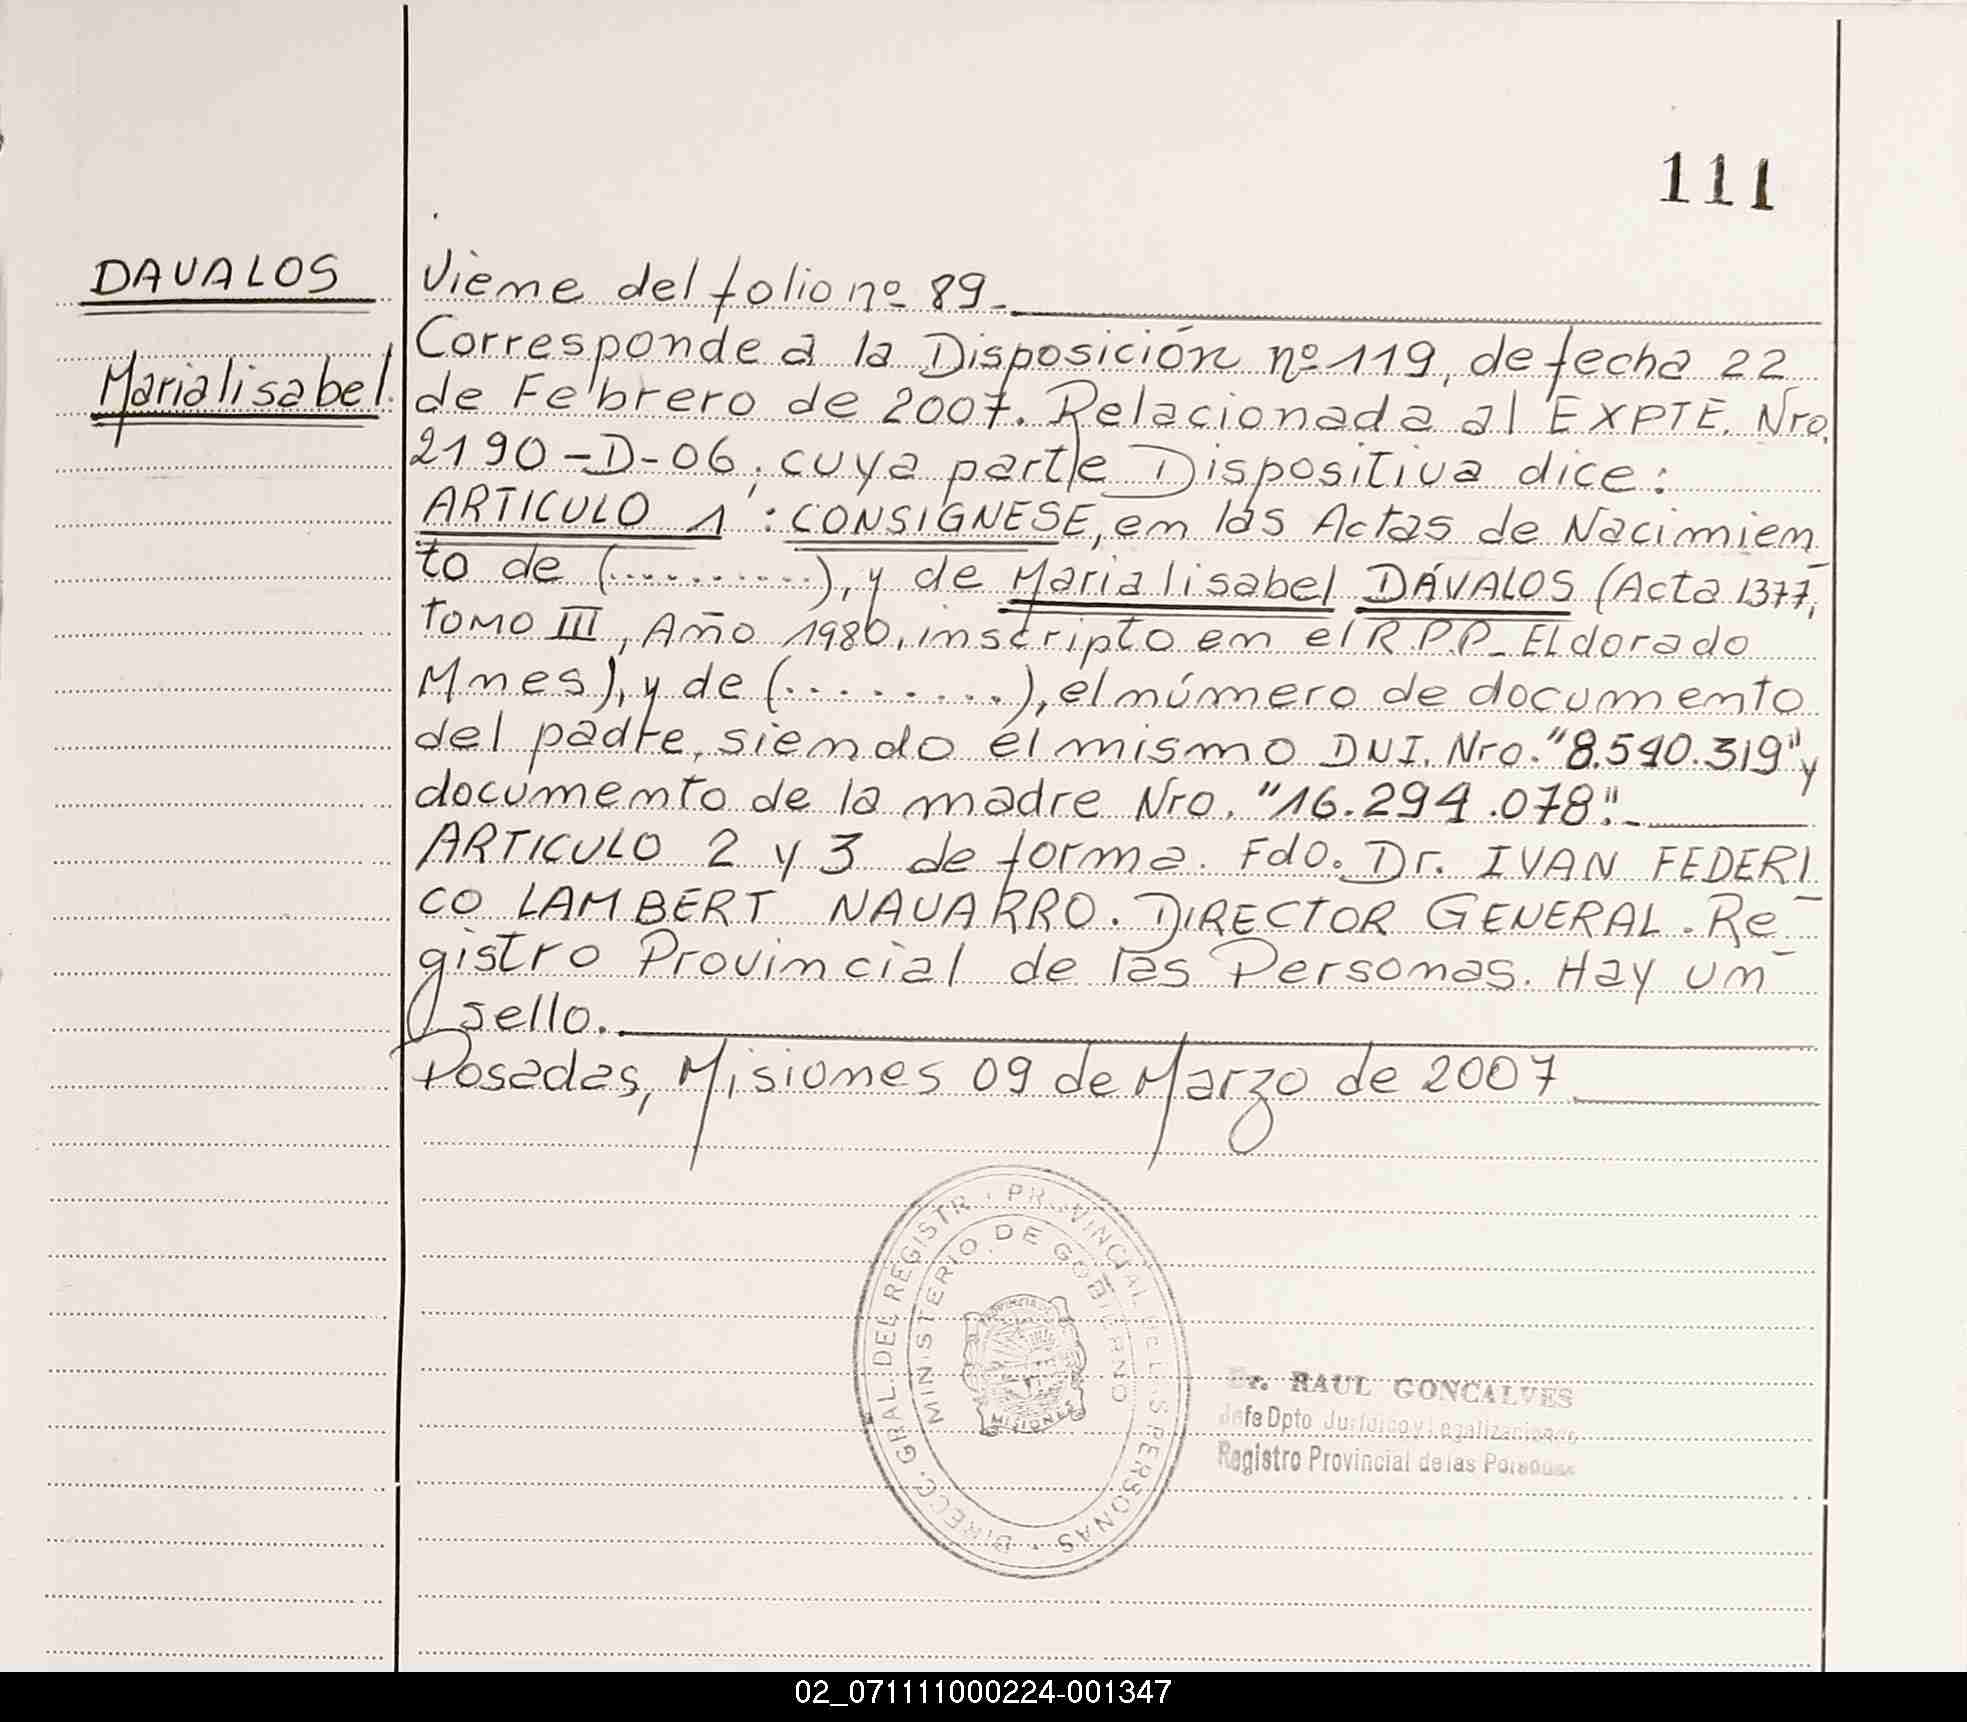 111
DAVALOS
Marialisabel.
Viene del folio nº 89.-
Corresponde a la Disposición nº 119, de fecha 22
de Febrero de 2007. Relacionada al EXPTE. Nro.
2190-D-06, cuya parte Dispositiva dice:
ARTICULO 1': CONSIGNESE, en las Actas de Nacimien
to de (..........), y de Marialisabel DÁVALOS (Acta 1377,
TOMO III, Año 1980, inscripto en el R.P.P- Eldorado
Mnes), y de (.........), el número de documento
del padre, siendo el mismo DNI. Nro. "8.540.319" y
documento de la madre Nro. "16.294.078".-
ARTICULO 2 y 3 de forma. Fdo. Dr. IVAN FEDERI
CO LAMBERT NAVARRO. DIRECTOR GENERAL. Re-
gistro Provincial de las Personas. Hay un
sello.
Posadas, Misiones 09 de Marzo de 2007
DIRECC. GRAL. DEL REGISTR. PROVINCIAL DE LAS PERSONAS
MINISTERIO DE GOBIERNO
PROVINCIA DE
MISIONES
Dr. RAUL GONCALVES
Jefe Dpto Jurídico y Legalizaciones
Registro Provincial de las Personas
02_071111000224-001347